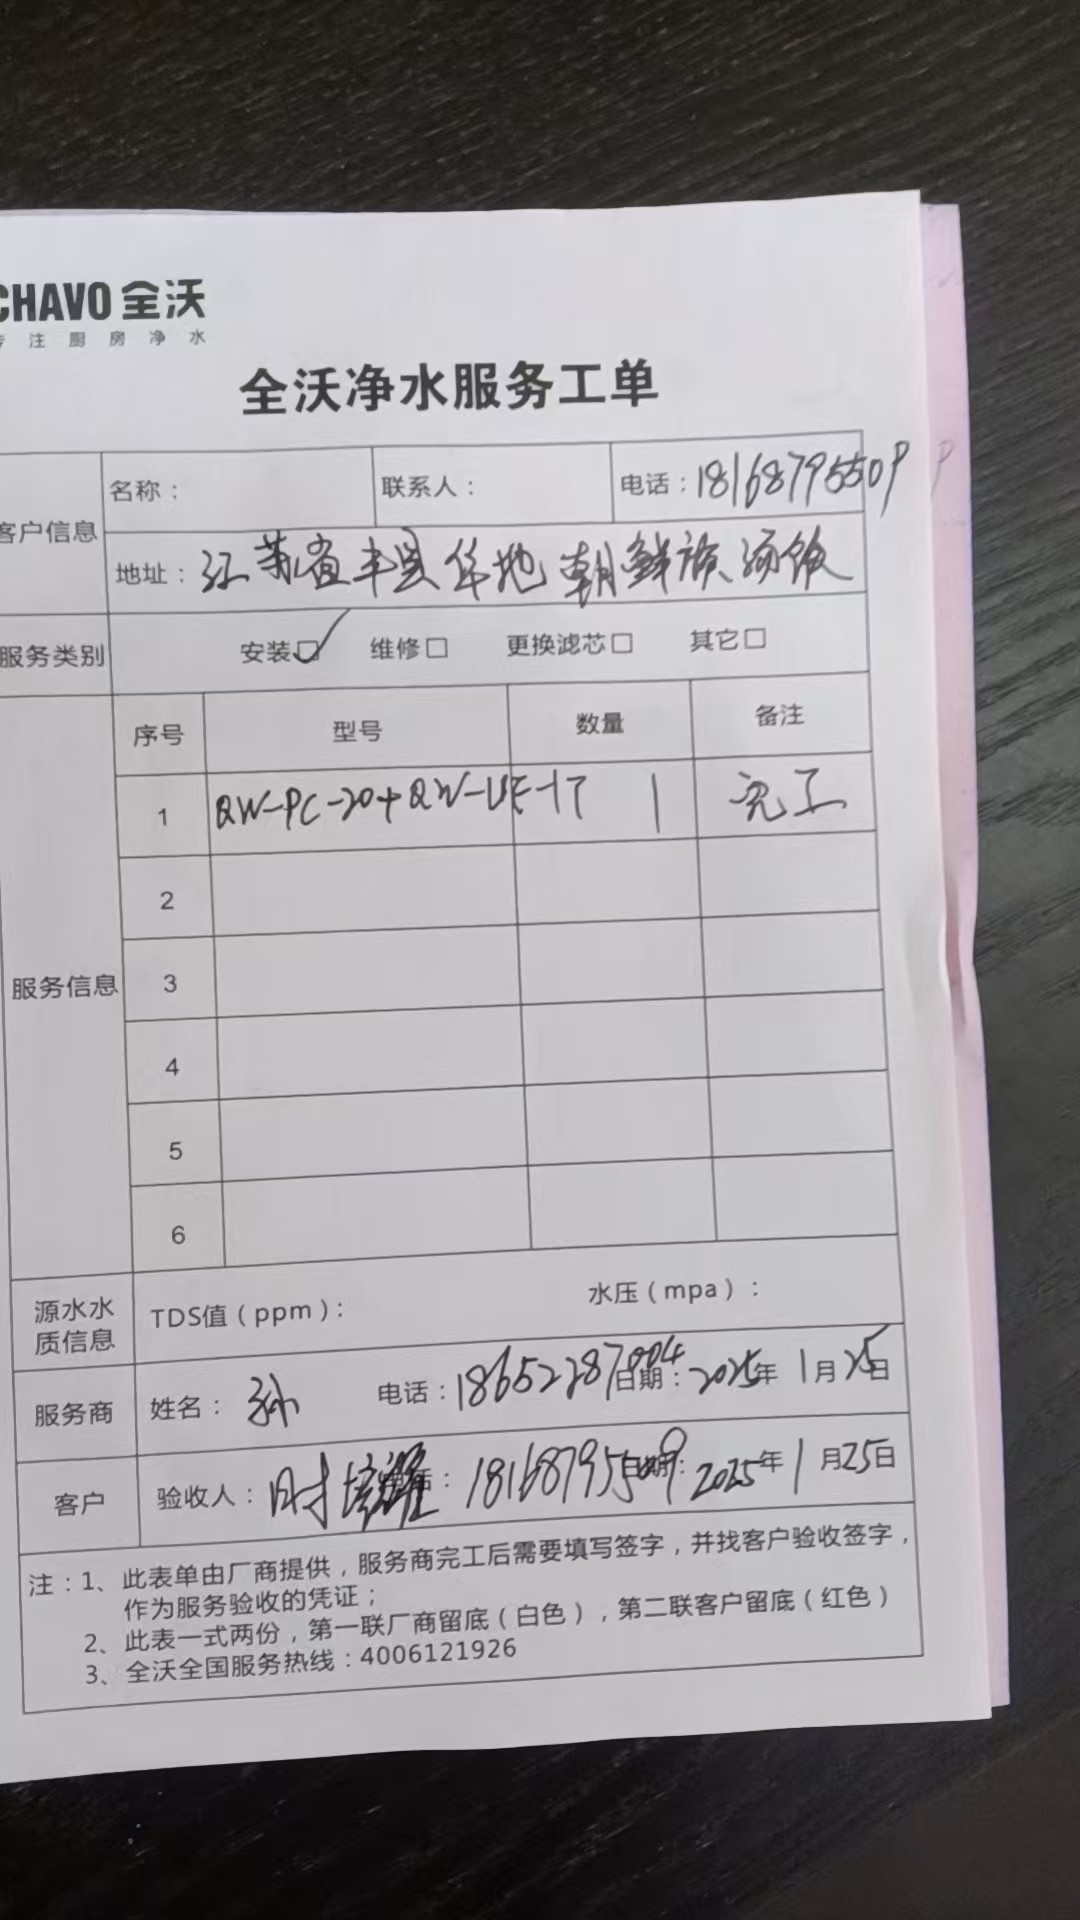 CHAVO 全沃
专注厨房净水
全沃净水服务工单
客户信息 名称： 联系人： 电话：18168795509
地址：江苏省丰县华地朝鲜族汤饭
服务类别 安装☑ 维修□ 更换滤芯□ 其它□
服务信息 序号 型号 数量 备注
1 QW-PC-20+QW-UF-1T 1 完工
2
3
4
5
6
源水水质信息 TDS值（ppm）： 水压（mpa）：
服务商 姓名：孙 电话：18652287004 日期：2025年1月25日
客户 验收人：时 电话：18168795509 日期：2025年1月25日
注：1、此表单由厂商提供，服务商完工后需要填写签字，并找客户验收签字，
作为服务验收的凭证；
2、此表一式两份，第一联厂商留底（白色），第二联客户留底（红色）
3、全沃全国服务热线：4006121926